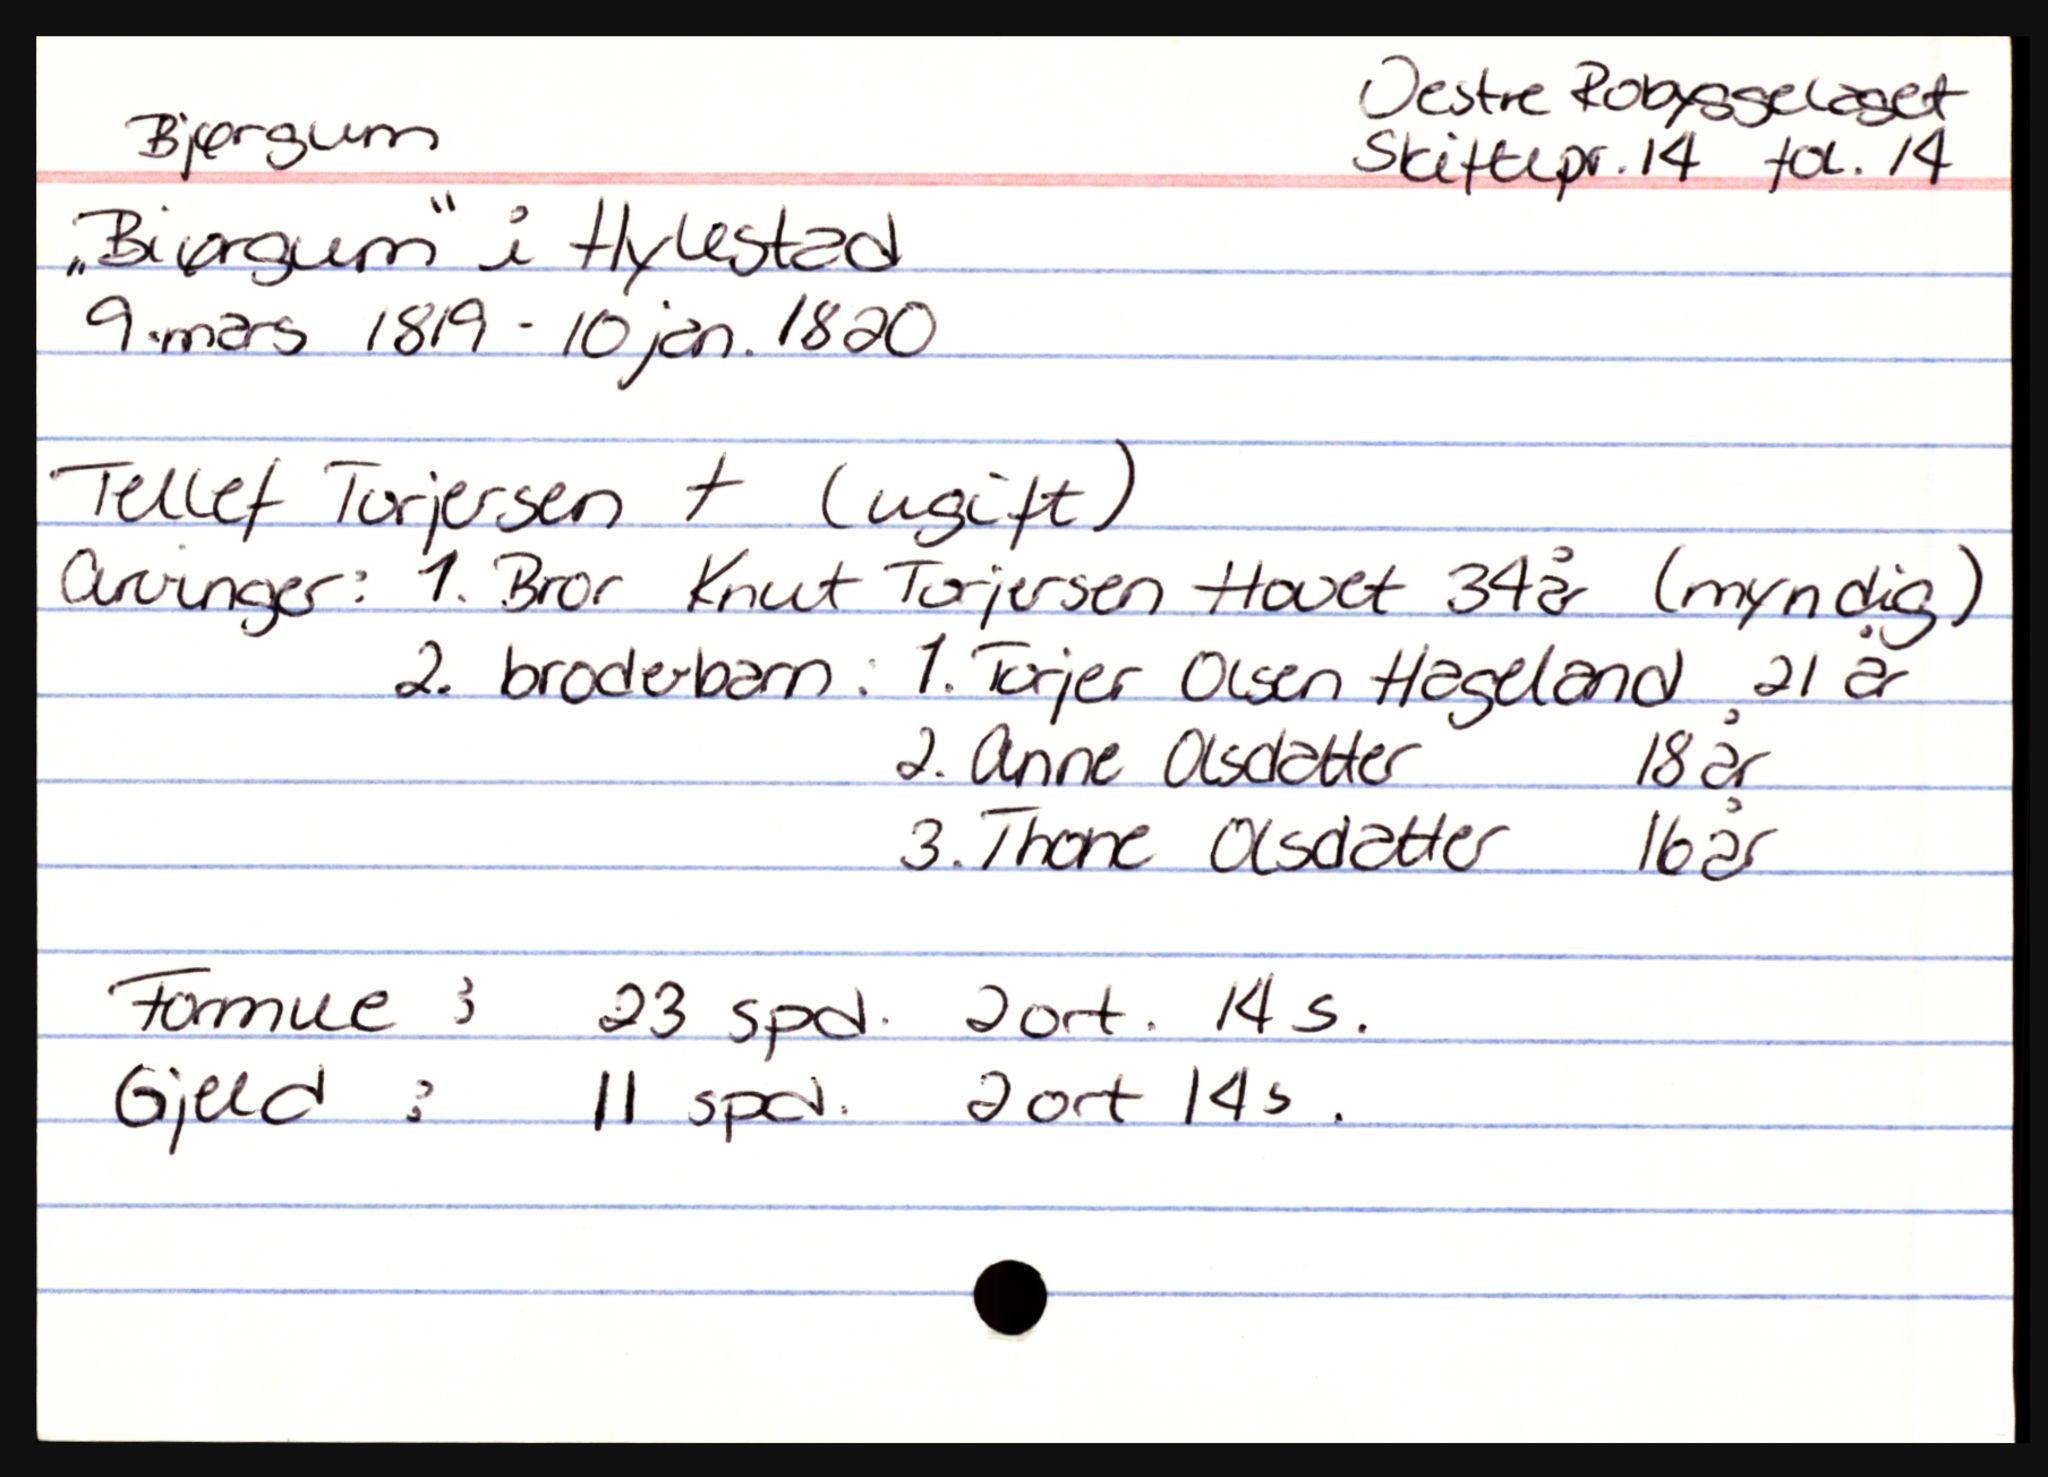 Bjørgum
Oestre Robyggelaget
Skiftepr. 14 fol. 14
„Biørgum“ i Hylestad
9. mars 1819 - 10 jan. 1820
Tellef Torjersen † (ugift)
Arvinger: 1. Bror Knut Torjersen Hovet 34 år (myndig)
2. broderbarn: 1. Torjer Olsen Hageland 21 år
2. Anne Olsdatter 18 år
3. Thone Olsdatter 16 år
Formue: 23 spd. 2 ort. 14 s.
Gjeld: 11 spd. 2 ort 14 s.